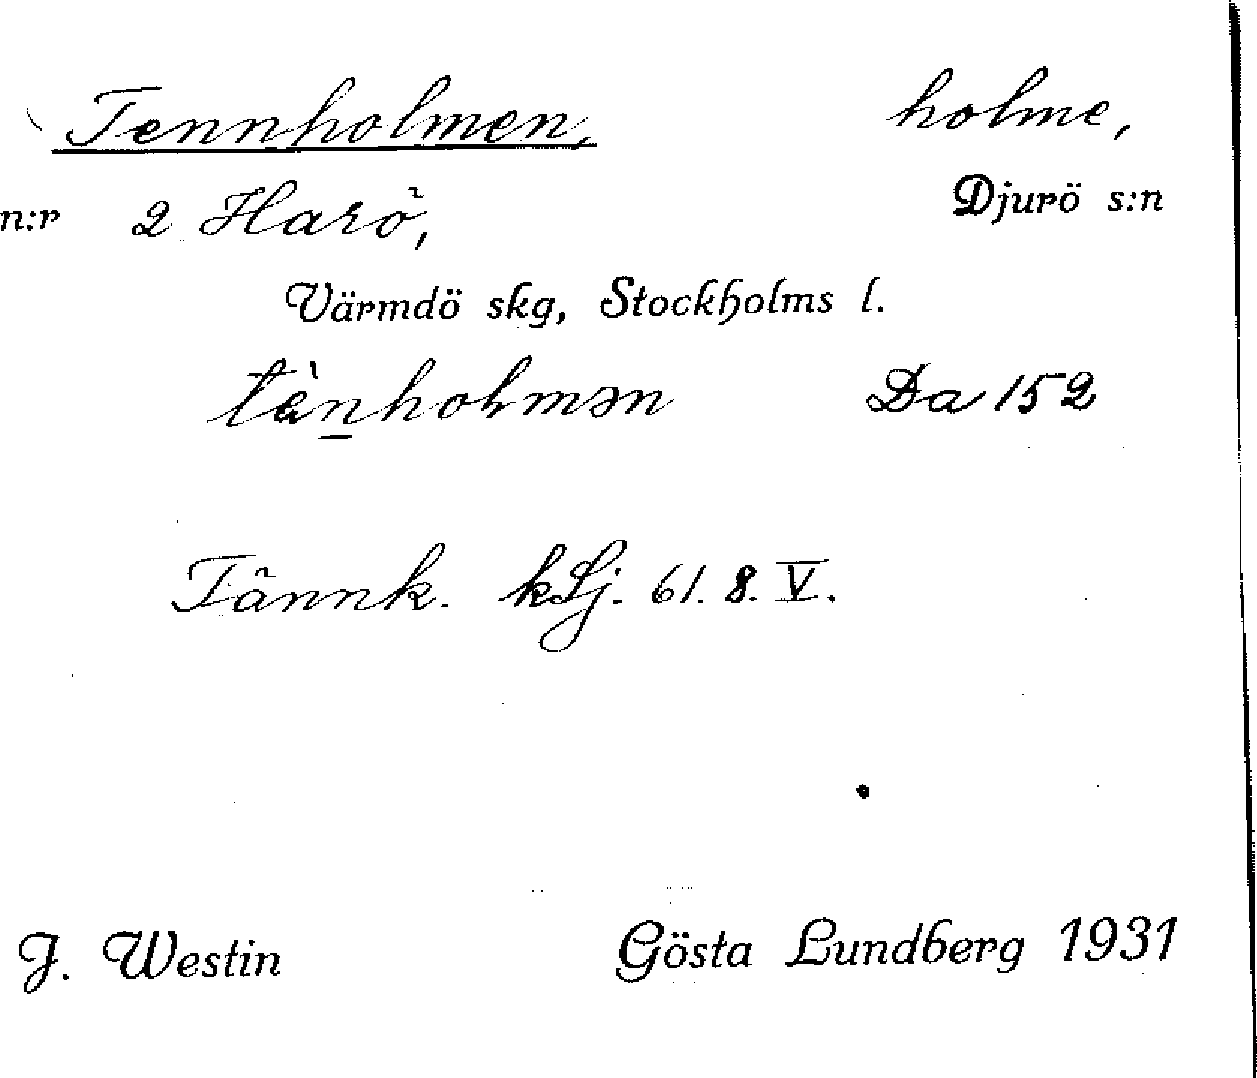 Tennholmen, holme,
n:r 2 Harö, Djurö s:n
Värmdö skg, Stockholms l.
tènholmən Da 152
Tännh. kLj. 61. 8. V.
J. Westin Gösta Lundberg 1931